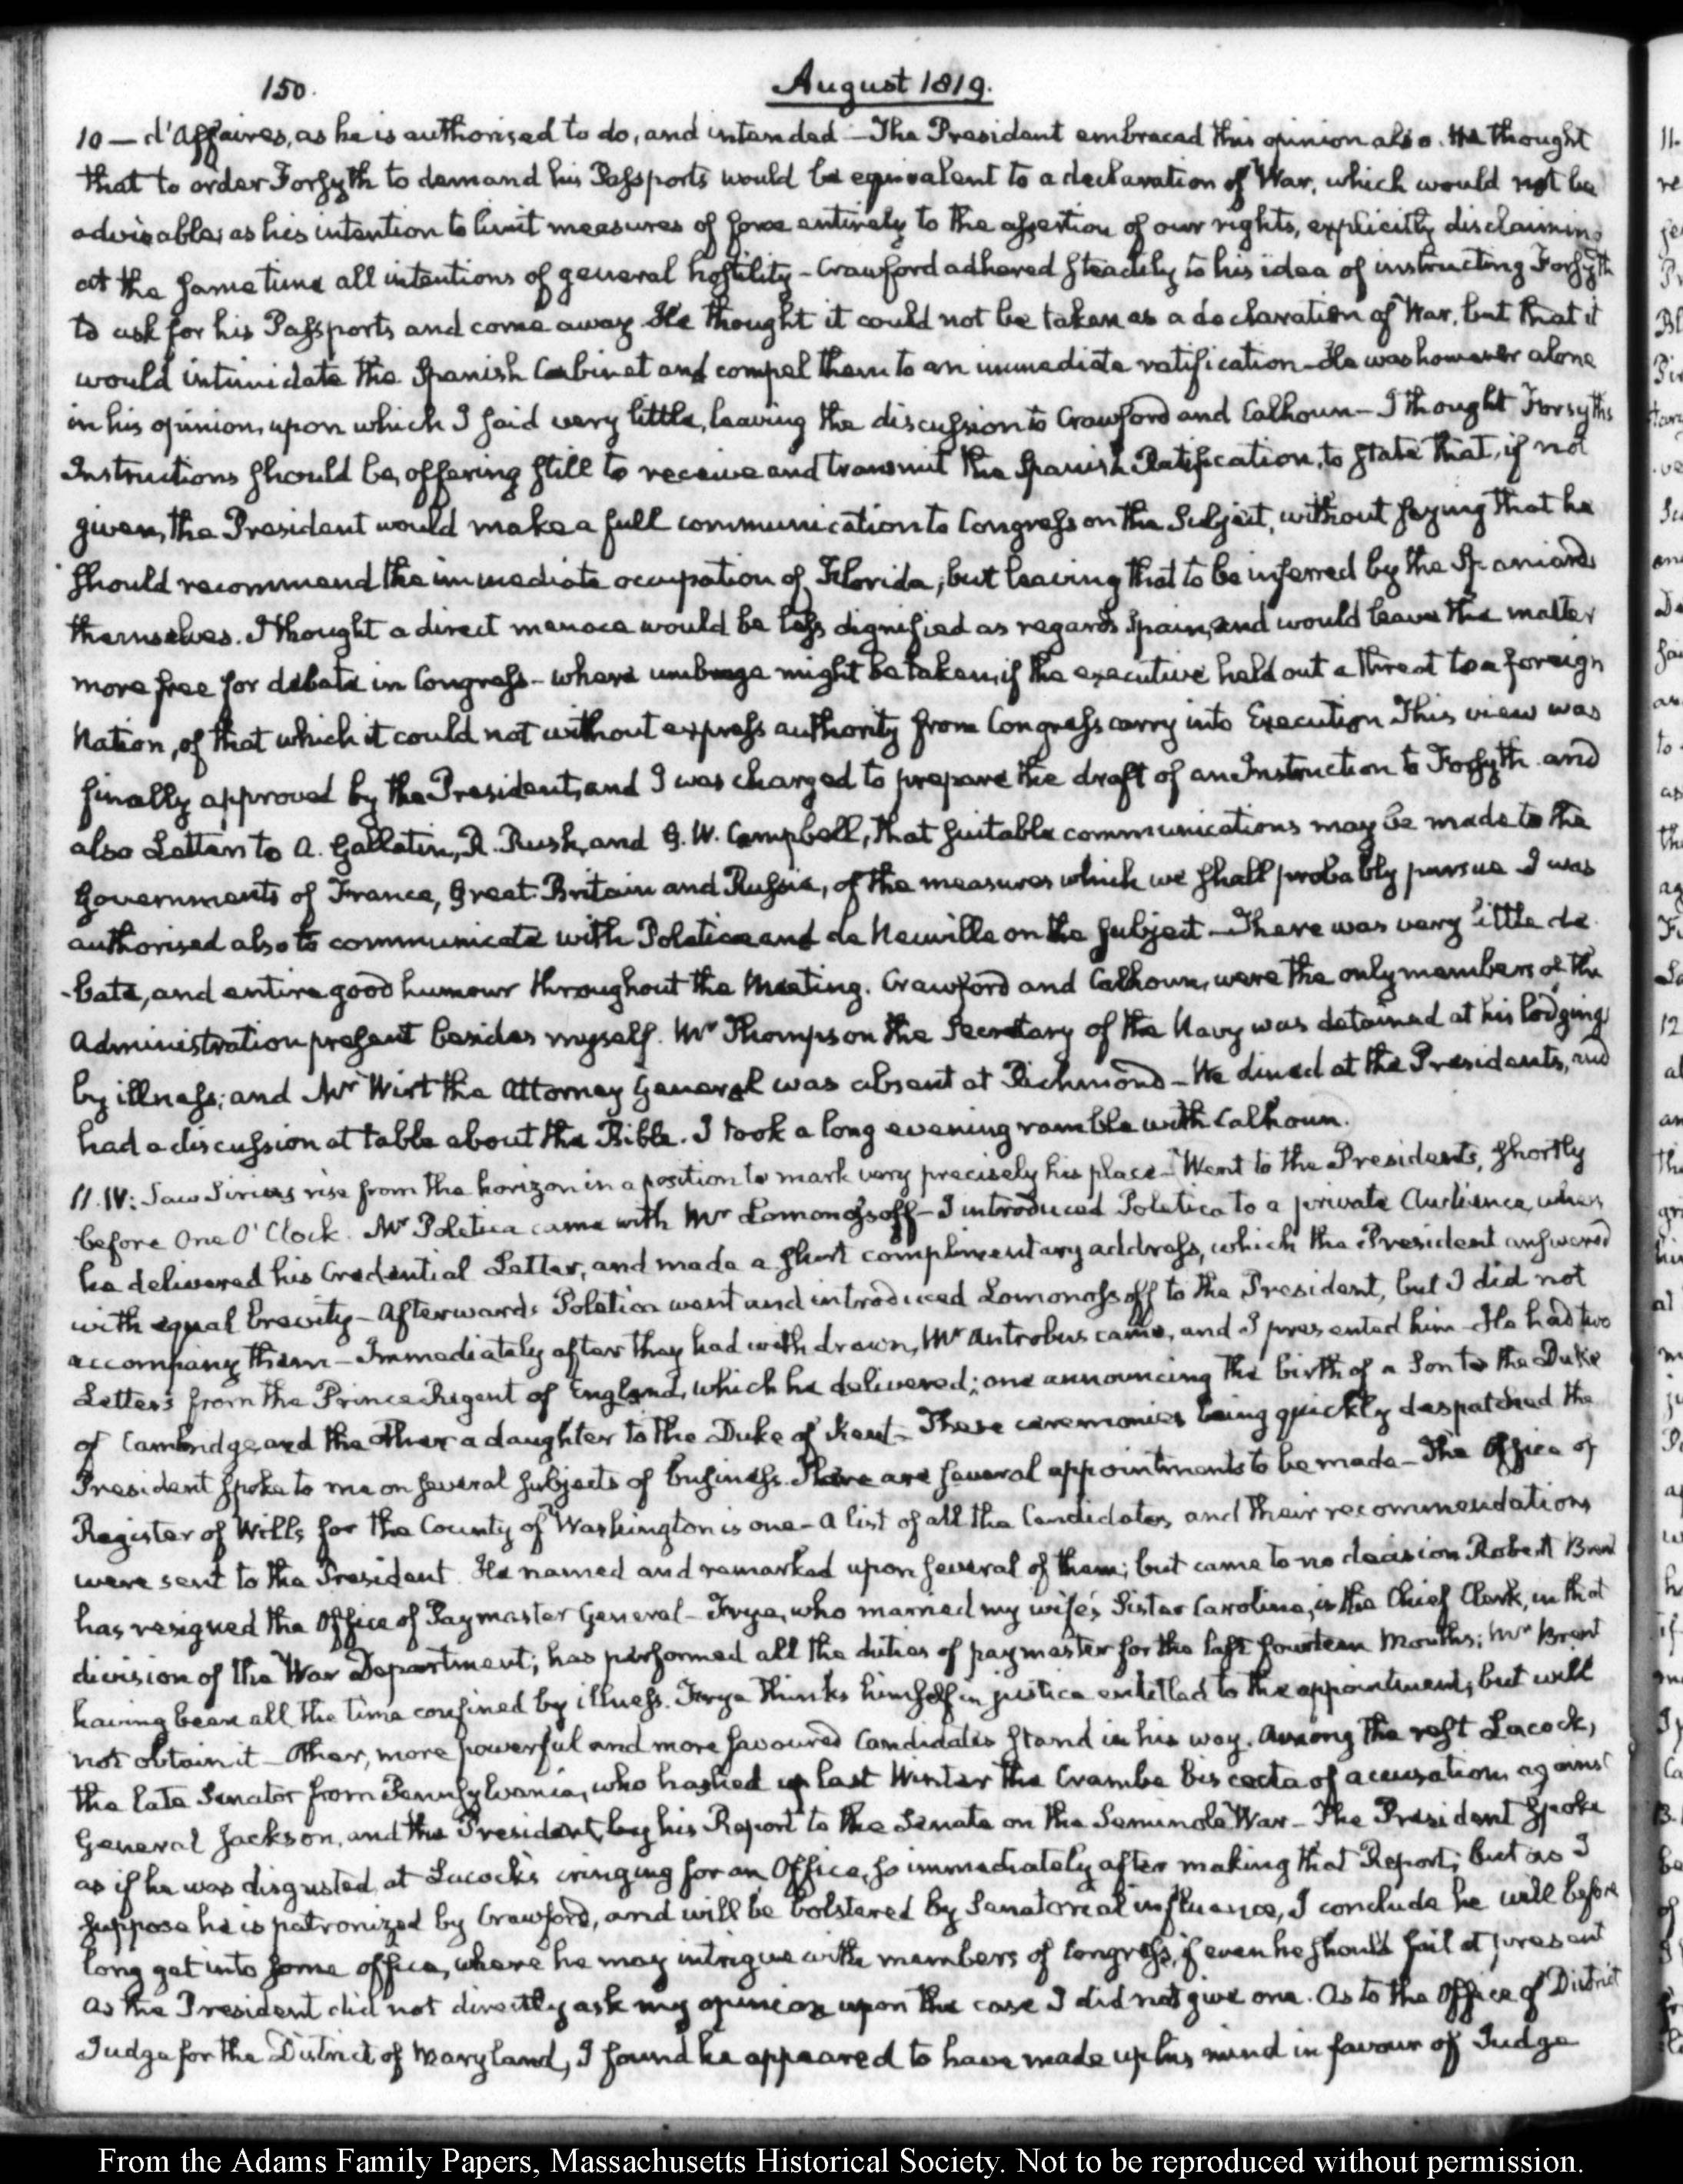 150.
August 1819.
10 — d'Affaires, as he is authorised to do, and intended — The President embraced this opinion also. He thought
that to order Forsyth to demand his Passports would be equivalent to a declaration of War, which would not be
advisable; as his intention to limit measures of force entirely to the assertion of our rights, explicitly disclaiming
at the same time all intentions of general hostility — Crawford adhered steadily to his idea of instructing Forsyth
to ask for his Passports and come away. He thought it could not be taken as a declaration of War, but that it
would intimidate the Spanish Cabinet and compel them to an immediate ratification — He was however alone
in his opinion, upon which I said very little, leaving the discussion to Crawford and Calhoun — I thought Forsyths
Instructions should be, offering still to receive and transmit the Spanish Ratification, to state that, if not
given, the President would make a full communication to Congress on the Subject, without saying that he
should recommend the immediate occupation of Florida, but leaving that to be inferred by the Spaniards
themselves. I thought a direct menace would be less dignified as regards Spain, and would leave the matter
more free for debate in Congress — where umbrage might be taken, if the executive held out a threat to a foreign
Nation, of that which it could not without express authority from Congress carry into Execution This view was
finally approved by the President, and I was charged to prepare the draft of an Instruction to Forsyth and
also Letters to A. Gallatin, R. Rush, and G. W. Campbell, that suitable communications may be made to the
Governments of France, Great-Britain and Russia, of the measures which we shall probably pursue I was
authorised also to communicate with Poletica and de Neuville on the subject — There was very little de
-bate, and entire good humour throughout the Meeting. Crawford and Calhoun, were the only members of the
Administration present besides myself. Mr Thompson the Secretary of the Navy was detained at his lodgings
by illness; and Mr Wirt the Attorney General was absent at Richmond — We dined at the Presidents, and
had a discussion at table about the Bible. I took a long evening ramble with Calhoun.
11. IV: Saw Sirius rise from the horizon in a position to mark very precisely his place — Went to the Presidents, shortly
before One O'Clock. Mr Poletica came with Mr Lomonossoff — I introduced Poletica to a private Audience, when
he delivered his Credential Letter, and made a short complimentary address, which the President answered
with equal brevity — Afterwards Poletica went and introduced Lomonossoff to the President, but I did not
accompany them — Immediately after they had withdrawn, Mr Antrobus came, and I presented him — He had two
Letters from the Prince Regent of England, which he delivered; one announcing the birth of a Son to the Duke
of Cambridge, and the other a daughter to the Duke of Kent — These ceremonies being quickly despatched the
President spoke to me on several subjects of business. There are several appointments to be made — The Office of
Register of Wills for the County of Washington is one — A list of all the Candidates, and their recommendations
were sent to the President. He named and remarked upon several of them; but came to no decision Robert Brent
has resigned the Office of Paymaster General — Frye, who married my wife's Sister Caroline, is the Chief Clerk, in that
division of the War Department; has performed all the duties of paymaster for the last fourteen Months; Mr Brent
having been all the time confined by illness. Frye thinks himself in justice entitled to the appointment; but will
not obtain it — Other, more powerful and more favoured Candidates stand in his way. Among the rest Lacock,
the late Senator from Pennsylvania, who hashed up last Winter the Crambe bis cocta of accusation against
General Jackson, and the President, by his Report to the Senate on the Seminole War — The President spoke
as if he was disgusted at Lacock's cringing for an Office, so immediately after making that Report; but as I
suppose he is patronized by Crawford, and will be bolstered by Senatorial influence, I conclude he will before
long get into some office, where he may intrigue with members of Congress, if even he should fail at present
As the President did not directly ask my opinion upon the case I did not give one. As to the Office of District
Judge for the District of Maryland, I found he appeared to have made up his mind in favour of Judge
From the Adams Family Papers, Massachusetts Historical Society. Not to be reproduced without permission.